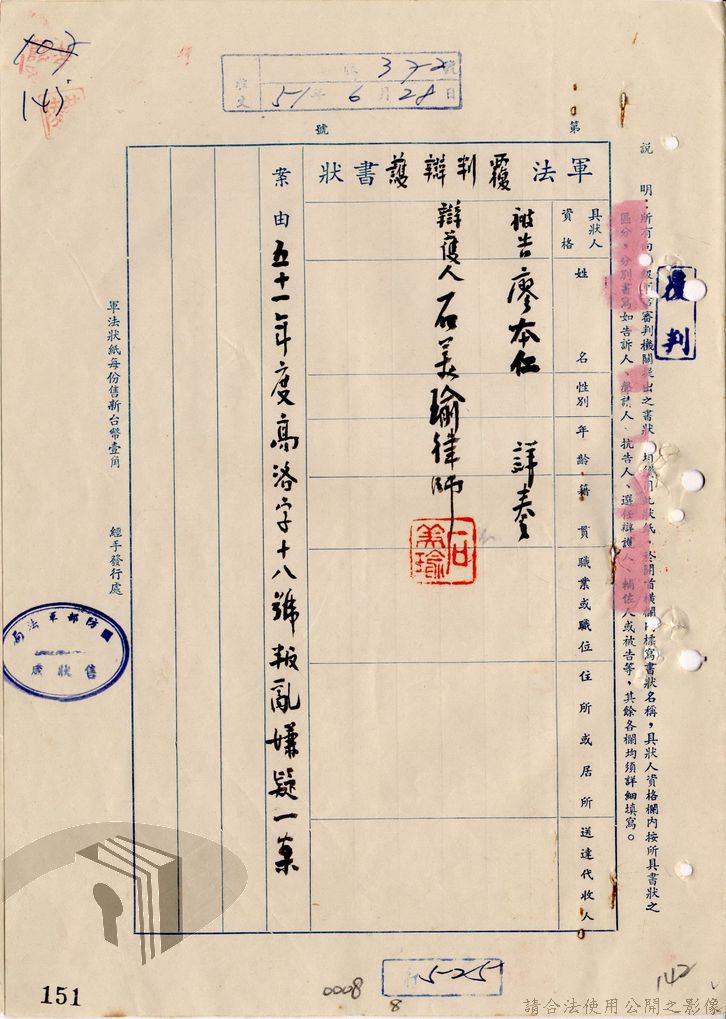 145
收文 字第372號
51年6月28日
第 號
說明:所有向各級軍法審判機關提出之書狀,均須用此狀紙,於開首橫欄內標寫書狀名稱,具狀人資格欄內按所具書狀之
區分,分別書寫如告訴人、聲請人、抗告人、選任辯護人、輔佐人或被告等,其餘各欄均須詳細填寫。
覆判
軍法覆判辯護書狀
具狀人資格
姓名
性別
年齡
籍貫
職業或職位
住所或居所
送達代收人
被告 廖本仁 詳奏
辯護人 石美瑜律師
石美瑜
案由 五十一年度高洛字十八號叛亂嫌疑一案
軍法狀紙每份售新台幣壹角 經手發行處
國防部軍法局
售狀處
525
0008
8
142
151
請合法使用公開之影像